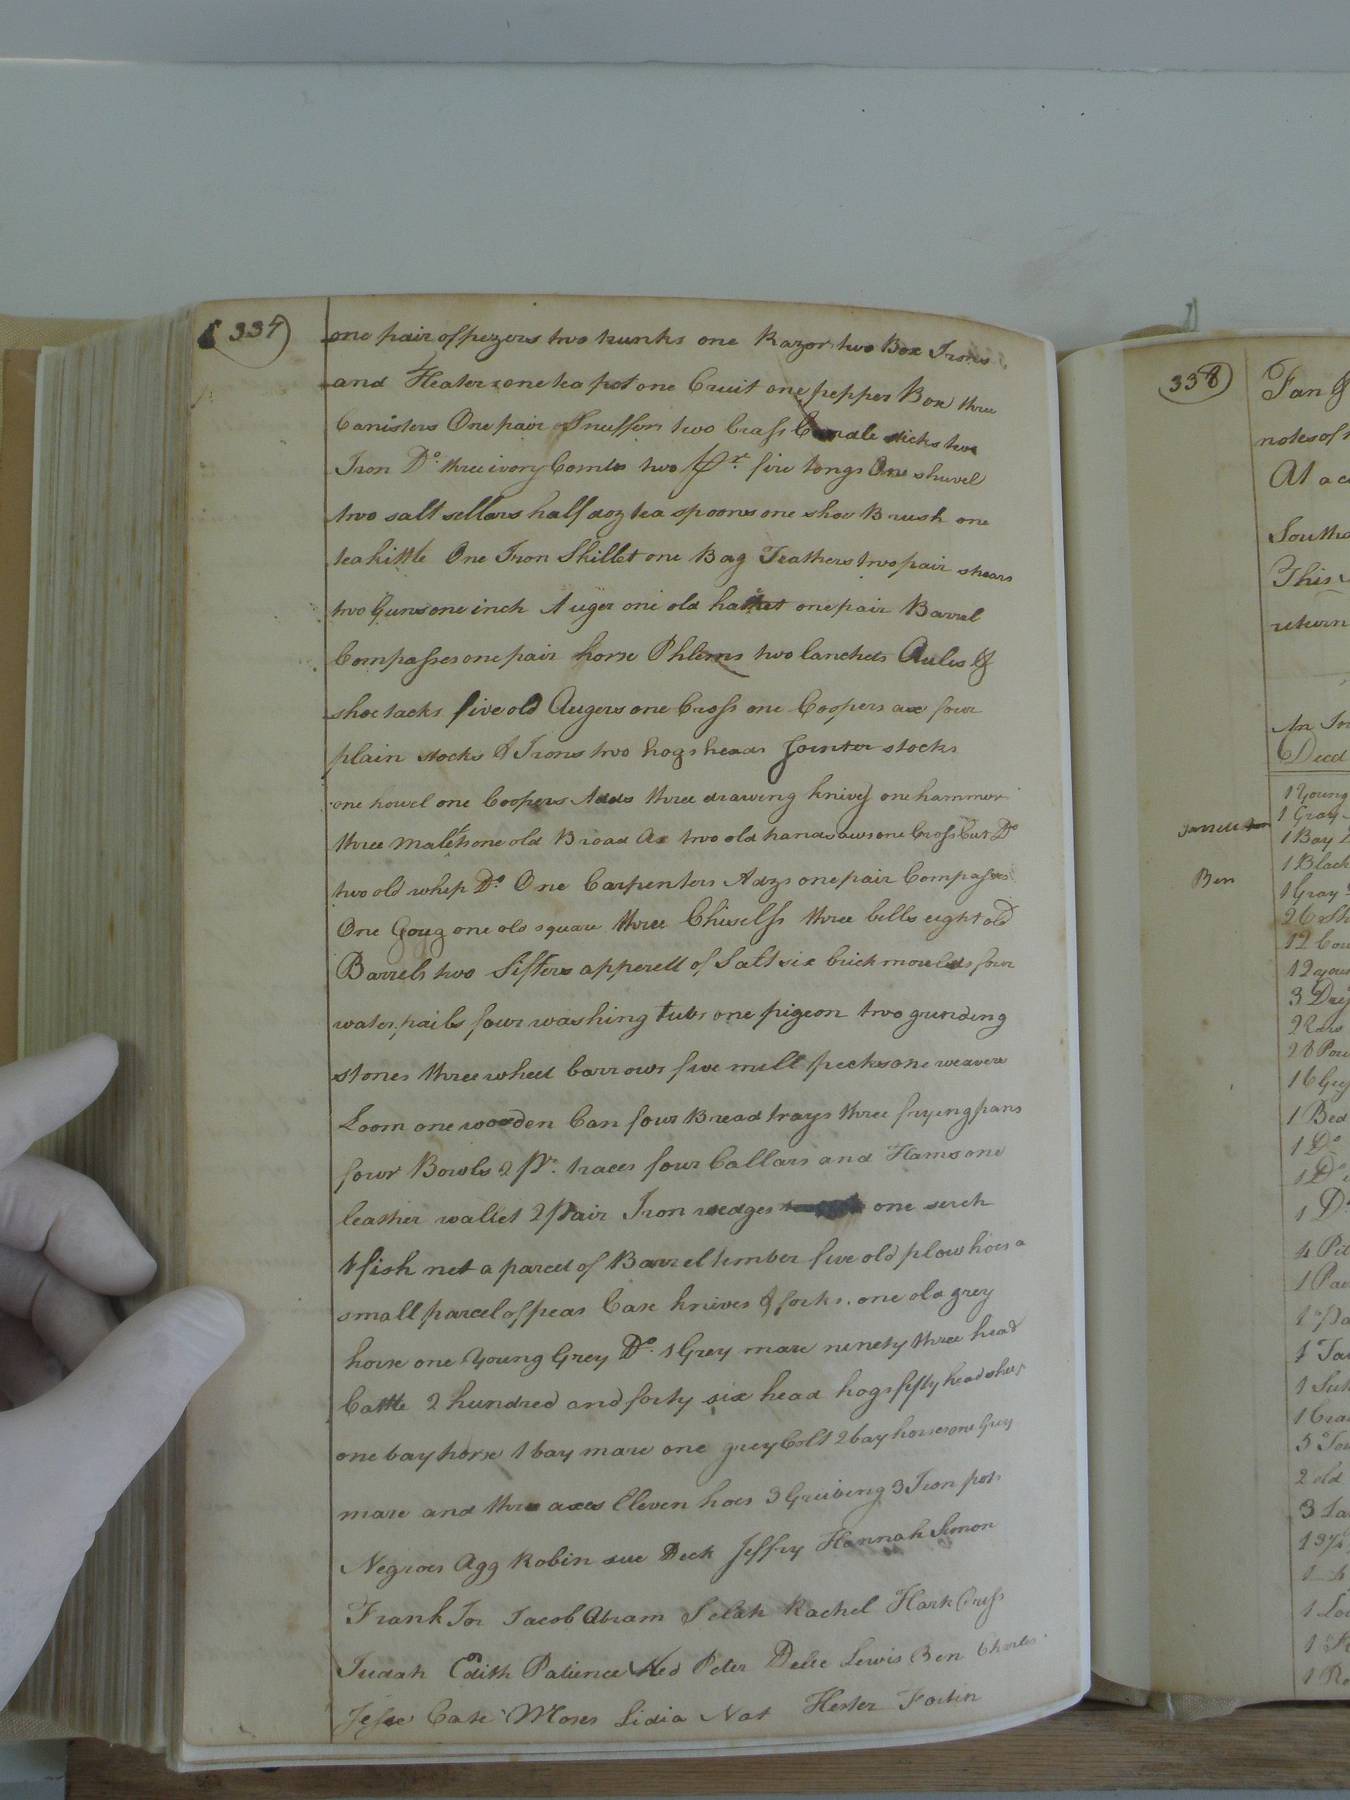 337
one pair of pezers two trunks one Razor two Box Irons
and Heaters one tea pot one Cruit one pepper Box three
Canisters One pair Snuffers two brass Candle sticks two
Iron Do. three ivory Combs two pr. fire tongs One shuvel
two salt sellars half doz tea spoons one shoe Brush one
teakittle One Iron Skillet one Bag Feathers two pair shears
two Guns one inch Auger one old hatchet one pair Barrel
Compasses one pair horse Phlems two lanchets Aules &
shoe tacks five old Augers one Cross one Coopers ax four
plain stocks & Irons two hogsheads Jointer stocks
one howel one Coopers Adds three drawing knives one hammer
three malets one old Broad Ax two old handsaws one Cross Cut Do
two old whip Do. One Carpenters Adzs one pair Compasses
One Goug one old square three Chiselss three bells eight old
Barrels two Sifters apperell of Salt six brick moulds four
water pails four washing tubs one pigeon two grinding
stones three wheel barrows five mill pecks one weavers
Loom one wooden Can four Bread trays three frying pans
four Bowls 2 pr. traces four Callars and Hams one
leather wallet 2 pair Iron wedges one serch
1 fish net a parcel of Barrel timber five old plow hoes a
small parcel of peas Case knives & forks. one old grey
horse one Young Grey Do. 1 Grey mare ninety three head
Cattle 2 hundred and forty six head hogs fifty head sheep
one bay horse 1 bay mare one grey Colt 2 bay horses one Grey
mare and three axes Eleven hoes 3 Grubing 3 Iron pots
Negroes Agg Robin sue Deck Jeffry Hannah Simon
Frank Joe Jacob Abram Selah Rachel Hark
Judah Edith Patience Ned Peter Delce Lewis Ben Charles
Jesse Cate Moses Lidia Nat Hester Fortin
338
Fan &
notes of
At a
South
This
return
An
Decd
1 Young
1 Gray
1 Bay
Ben
1 Black
1 Gray
26 Sh
12 Cow
12 your
3
2
28
16
1 Bed
1 Do
1 Do
1 D
4
1
1
1
1
1
3
2 old
3
1
1
1
1
1